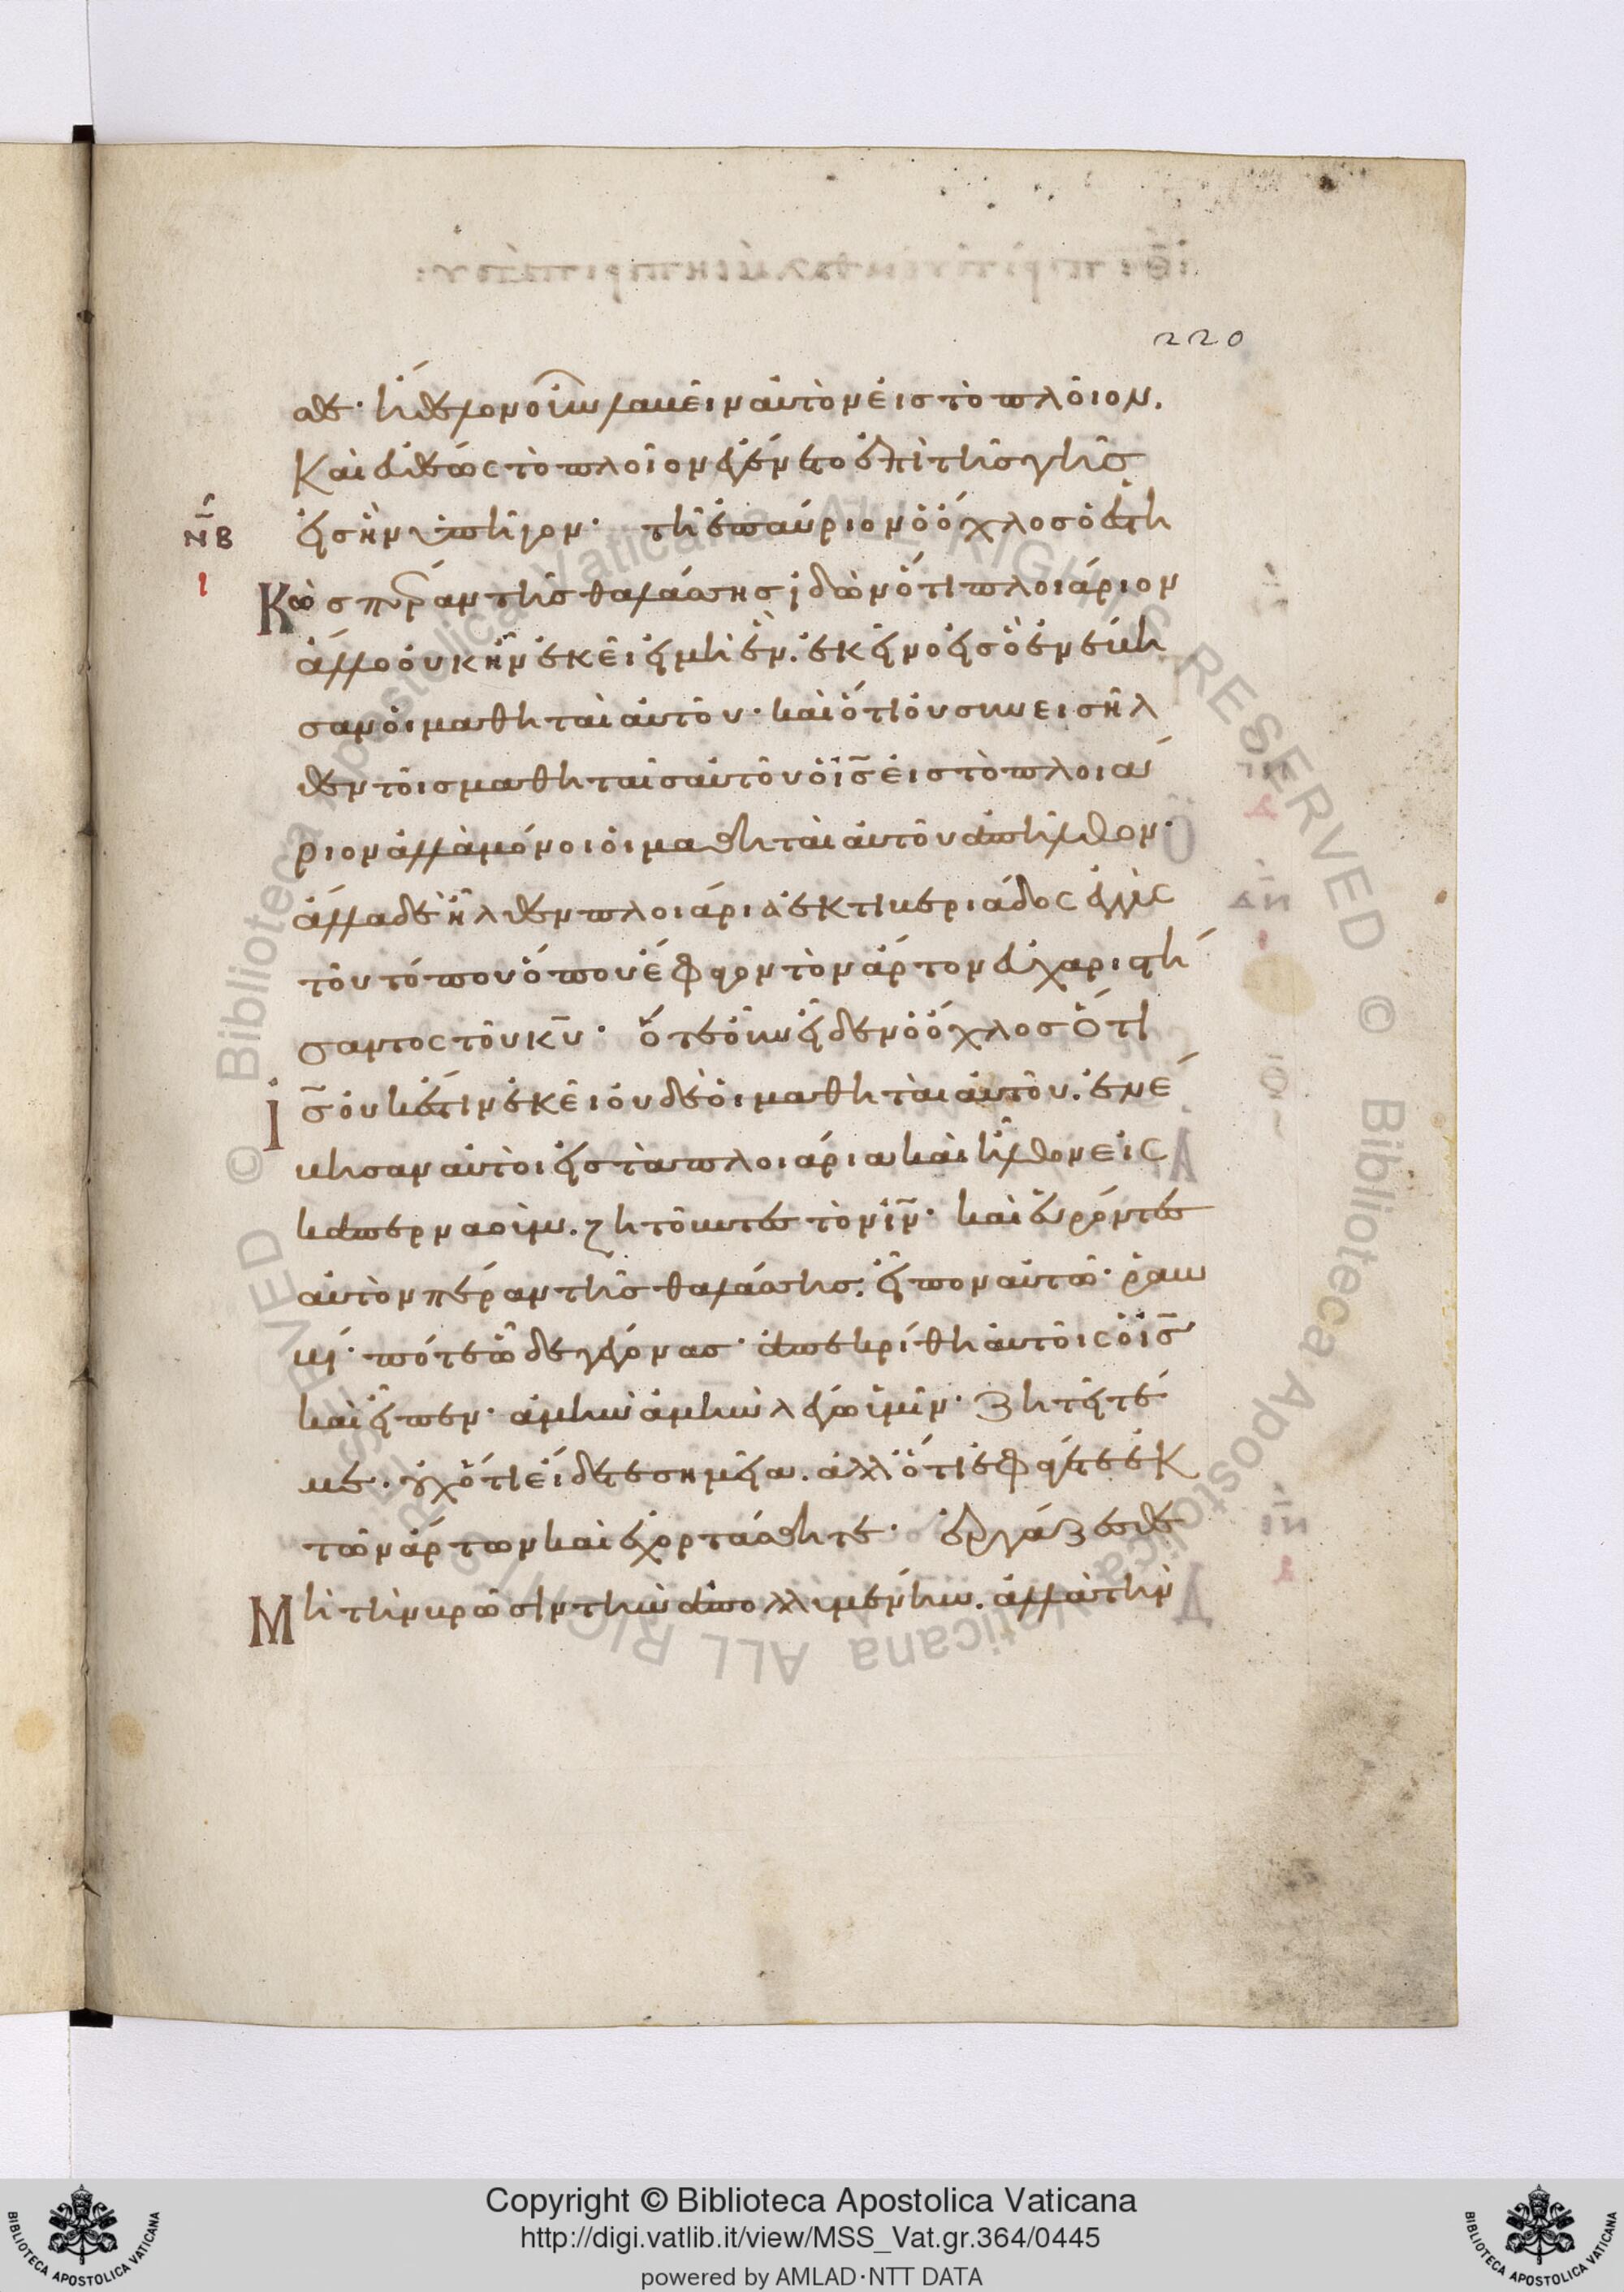 220
σθε· ἤθελον οὖν λαβεῖν αὐτὸν εἰς τὸ πλοῖον.
Καὶ εὐθέως τὸ πλοῖον ἐγένετο ἐπὶ τῆς γῆς
εἰς ἣν ὑπῆγον· τῆ ἐπαύριον ὁ ὄχλος ὁ ἑστη
ΝΒ
Ι
Κὼς πέραν τῆς θαλάσσης ἰδὼν ὅτι πλοιάριον
ἄλλο οὐκ ἦν ἐκεῖ εἰ μὴ ἕν. ἐκεῖνο εἰς ὃ ἐνέβη
σαν οἱ μαθηταὶ αὐτοῦ· καὶ ὅτι οὐ συνεισῆλ
θεν τοῖς μαθηταῖς αὐτοῦ ὁ ἰς εἰς τὸ πλοιά
ριον ἀλλὰ μόνοι οἱ μαθηταὶ αὐτοῦ ἀπῆλθον·
ἄλλα δὲ ἦλθεν πλοιάρια ἐκ τιβεριάδος ἐγγὺς
τοῦ τόπου ὅπου ἔφαγον τὸν ἄρτον εὐχαριστή
σαντος τοῦ κυ· ὅτε οὖν εἶδεν ὁ ὄχλος ὅτι
Ἰς οὐκ ἔστιν ἐκεῖ οὐδὲ οἱ μαθηταὶ αὐτοῦ. ἐνέ
βησαν αὐτοὶ εἰς τὰ πλοιάρια καὶ ἦλθον εἰς
καπερναοὺμ. ζητοῦντες τὸν ιν· καὶ εὑρόντες
αὐτὸν πέραν τῆς θαλάσσης. εἶπον αὐτῶ· ῥαβ
βί· πότε ὧδε γέγονας· ἀπεκρίθη αὐτοῖς ὁ ἰς
καὶ εἶπεν· ἀμὴν ἀμὴν λέγω ὑμῖν· ζητεῖτέ
με. οὐχ ὅτι εἴδετε σημεῖα. ἀλλ' ὅτι ἐφάγετε ἐκ
τῶν ἄρτων καὶ ἐχορτάσθητε· ἐργάζεσθε
Μὴ τὴν βρῶσιν τὴν ἀπολλυμένην. ἀλλὰ τὴν
© Biblioteca Apostolica Vaticana ALL RIGHTS RESERVED
© Biblioteca Apostolica Vaticana ALL RIGHTS RESERVED
BIBLIOTECA APOSTOLICA VATICANA
Copyright © Biblioteca Apostolica Vaticana
http://digi.vatlib.it/view/MSS_Vat.gr.364/0445
powered by AMLAD·NTT DATA
BIBLIOTECA APOSTOLICA VATICANA